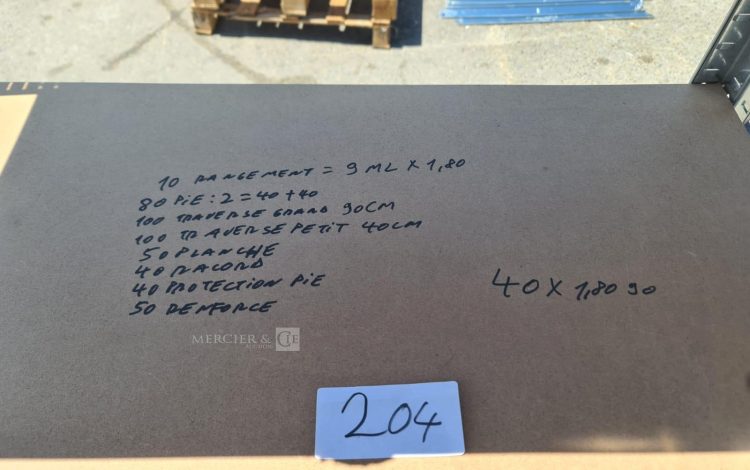 10 RANGEMENT = 9 ML X 1,80
80 PIE : 2 = 40 + 40
100 TRAVERSE GRAND 90CM
100 TRAVERSE PETIT 40CM
50 PLANCHE
40 RACORD
40 PROTECTION PIE
50 RENFORCE
40 X 1,80 90
MERCIER & CIE
AUCTION
204